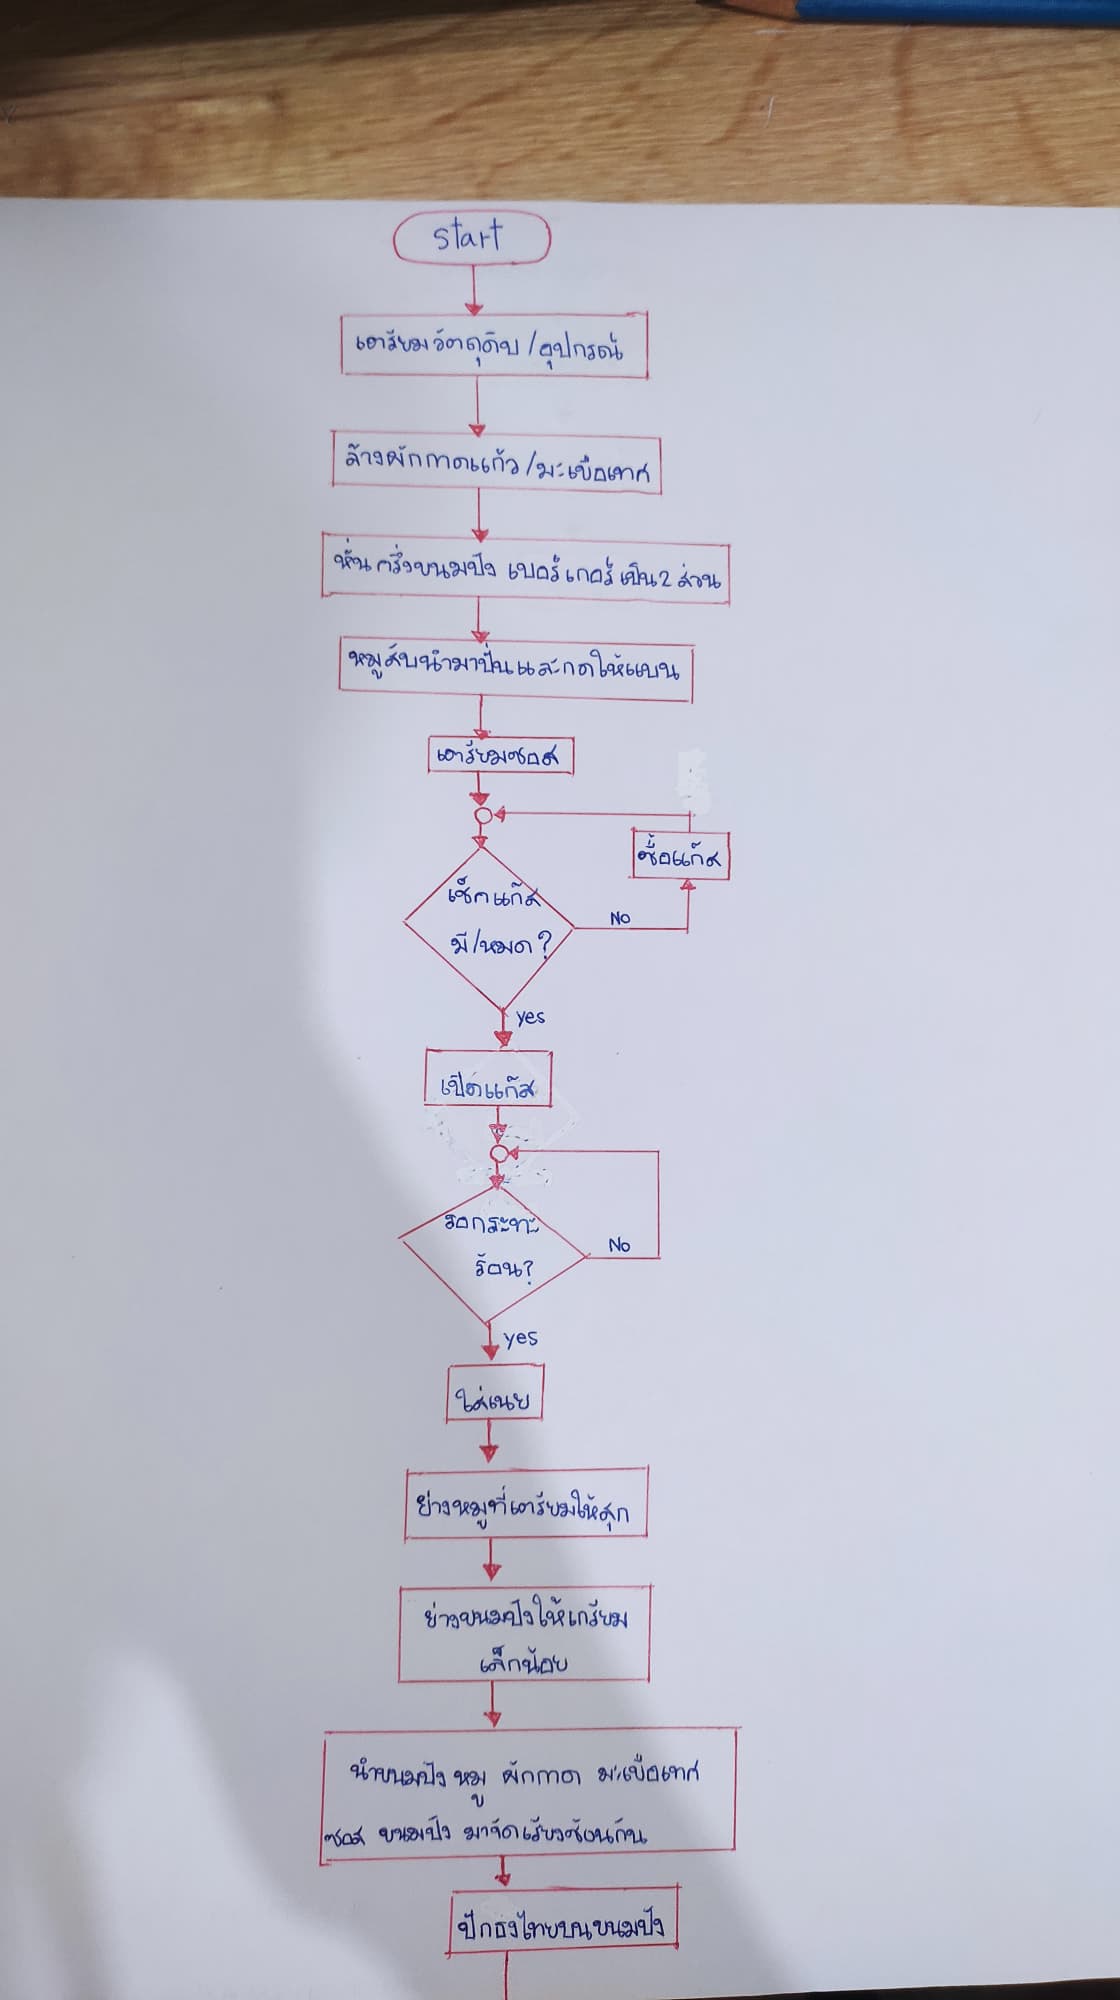 start
เตรียมวัตถุดิบ/อุปกรณ์
ล้างผักกาดแก้ว/มะเขือเทศ
หั่นครึ่งขนมปัง เบอร์เกอร์ เป็น 2 ส่วน
หมูสับนำมาปั้นและกดให้แบน
เตรียมซอส
ซื้อแก๊ส
เช็คแก๊ส
มี/หมด?
No
yes
เปิดแก๊ส
รอกระทะ
ร้อน?
No
yes
ใส่เนย
ย่างหมูที่เตรียมให้สุก
ย่างขนมปังให้เกรียม
เล็กน้อย
นำขนมปัง หมู ผักกาด มะเขือเทศ
ซอส ขนมปัง มาจัดเรียงซ้อนกัน
ปักธงไทยบนขนมปัง